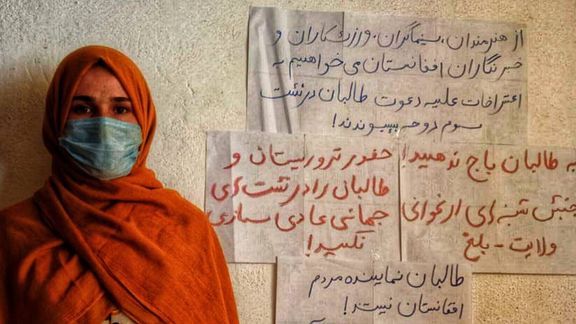 از هنرمندان، سینماگران، ورزشکاران و
خبرنگاران افغانستان می‌خواهیم به
اعتراضات علیه دعوت طالبان در نشست
سوم دوحه بپیوندند!
حضور تروریستان و
طالبان را در نشست‌های
جهانی عادی سازی
نکنید!
به طالبان باج ندهید!
جنبش شنبه‌های ارغوانی
ولایت - بلخ
طالبان نماینده مردم
افغانستان نیست!